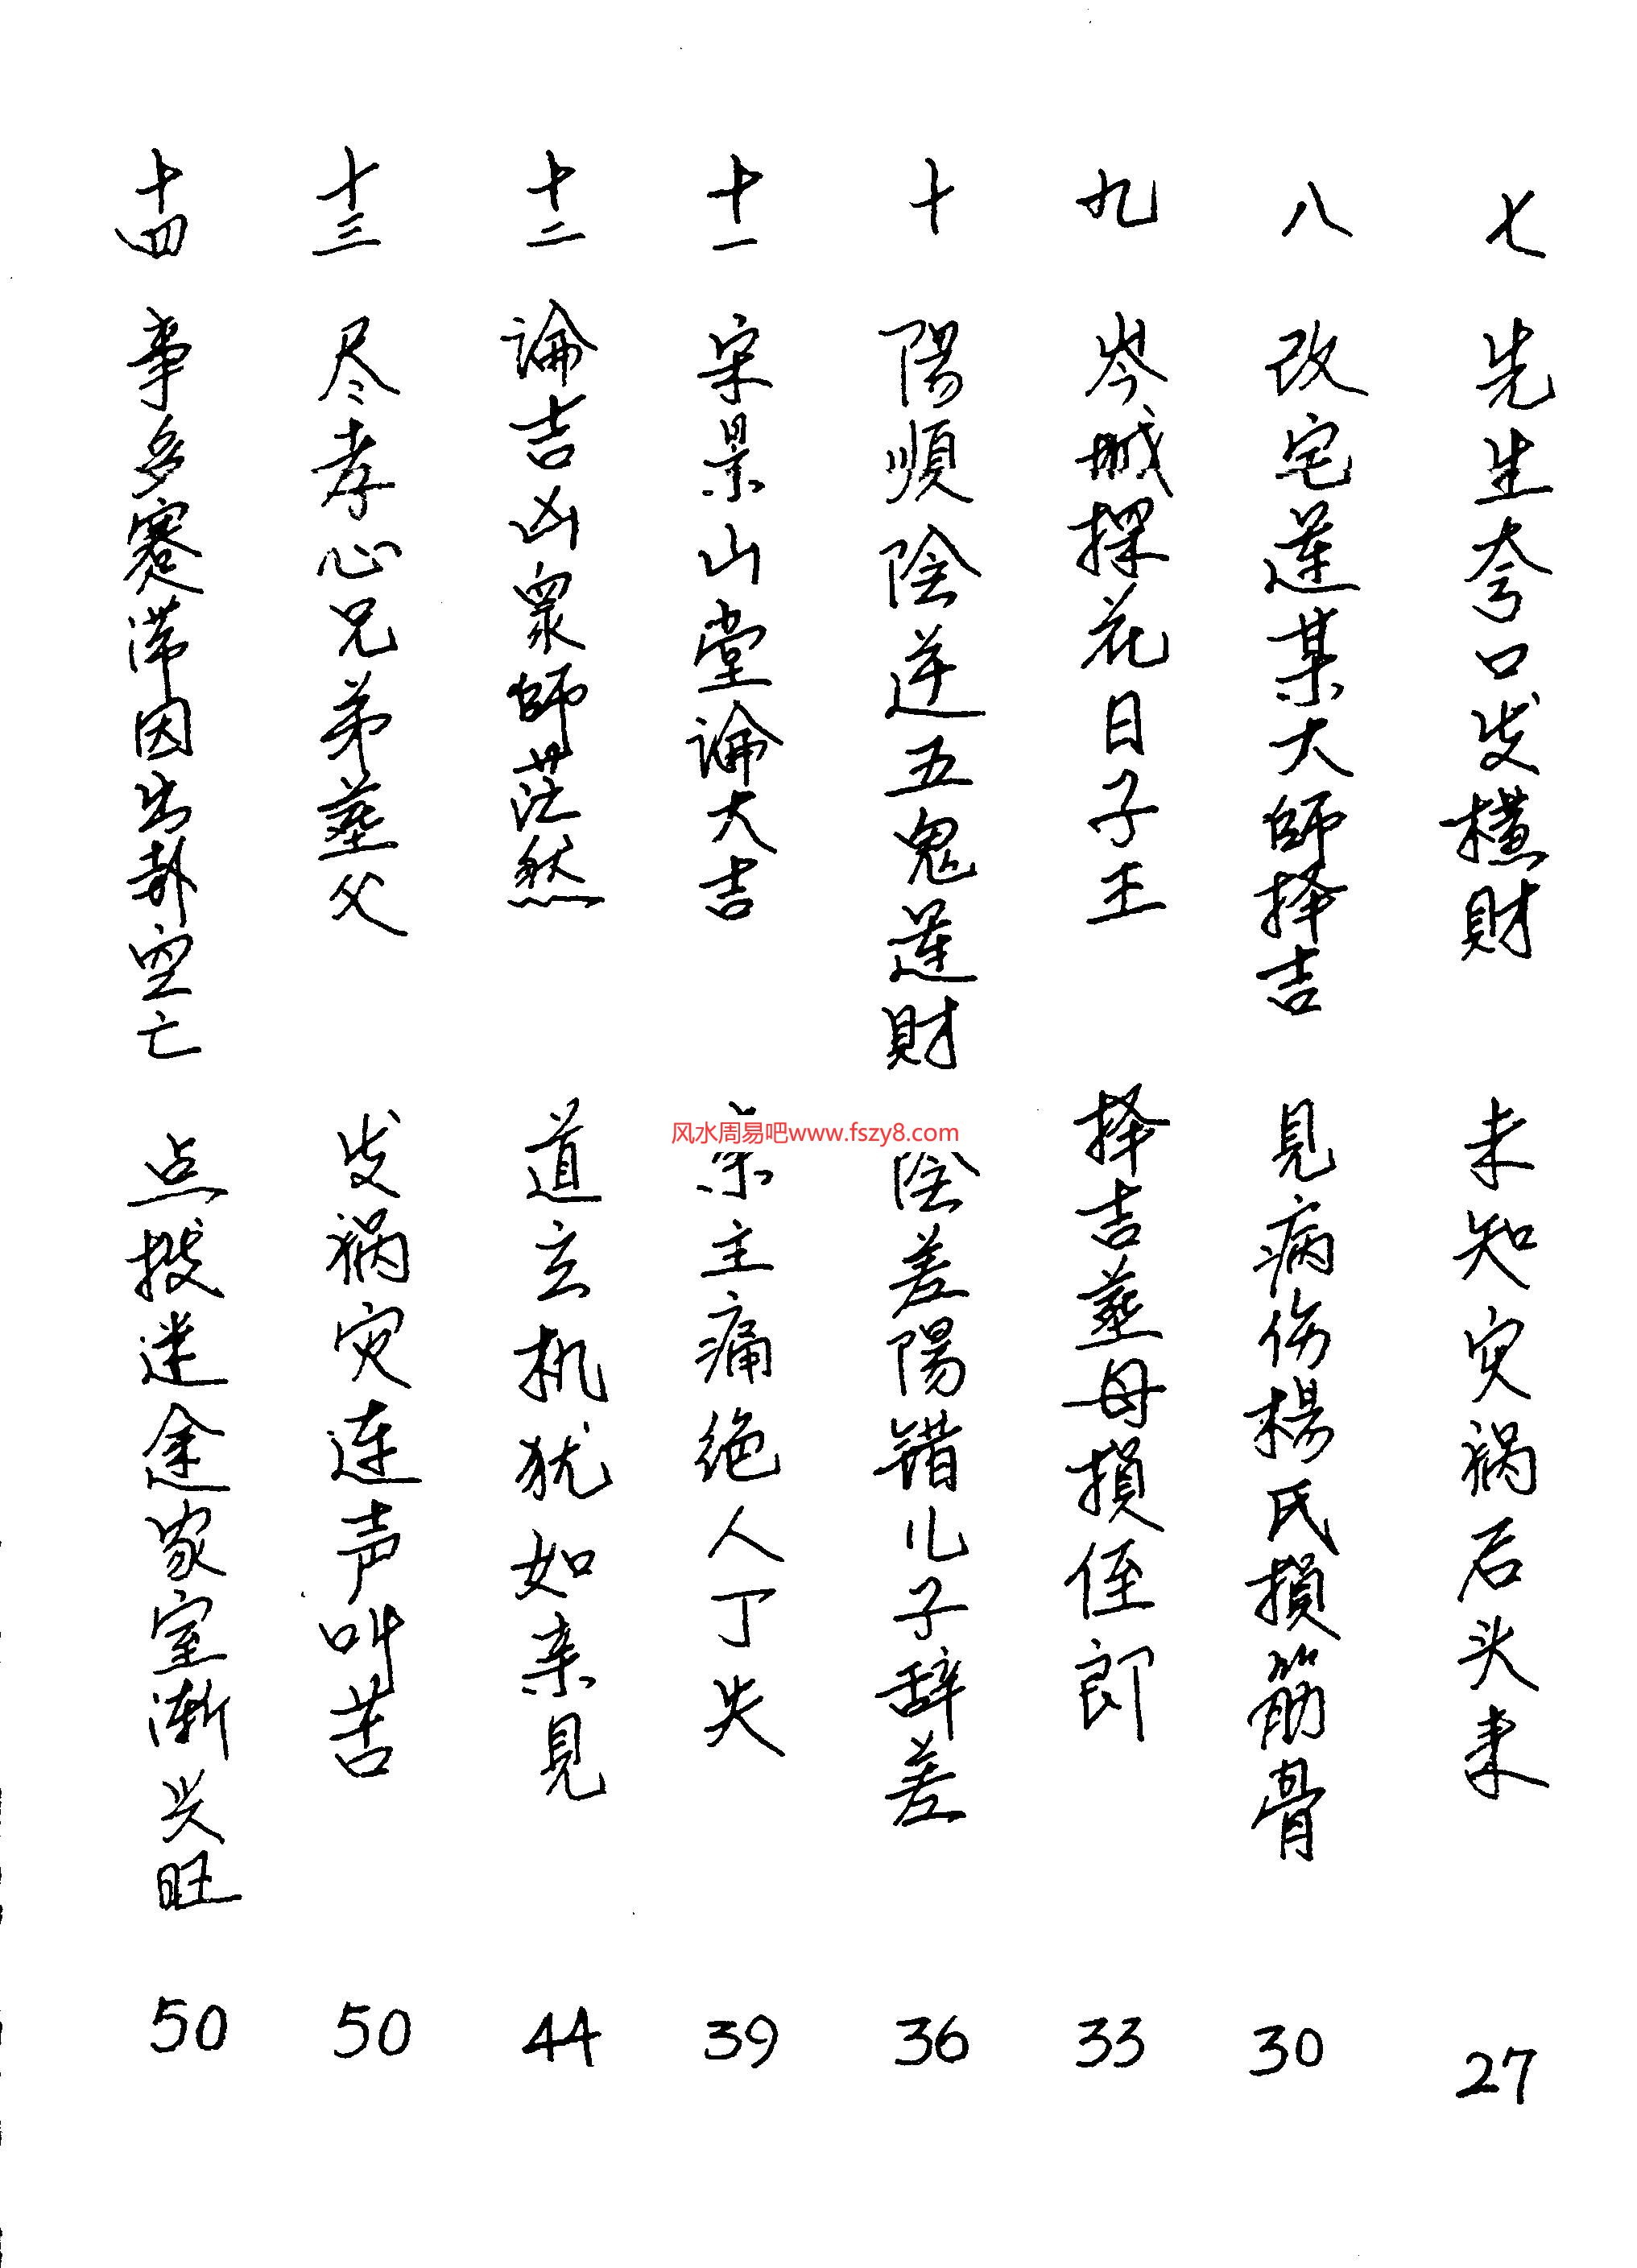 七 先生夸口发横财 未知灾祸后头来 27
八 改宅運某大師择吉 見病伤楊氏損筋骨 30
九 岑城探花日子王 择吉葬母損侄郎 33
十 陽順陰逆五鬼運財 陰差陽错儿子辞差 36
十一 宋景山堂論大吉 宗主痛绝人丁失 39
十二 論吉凶眾師茫然 道玄机犹如亲見 44
十三 尽孝心兄弟葬父 发祸灾连声叫苦 50
十四 事多蹇滞因出卦空亡 点拨迷途家室渐兴旺 50
风水周易吧www.fszy8.com